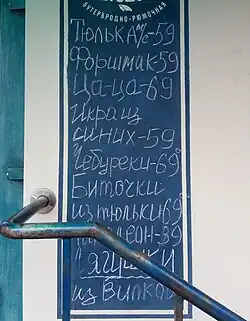 БУТЕРБРОДНО-РЮМОЧНАЯ
ТЮЛЬКА м/с-59
Форшмак-59
Ца-ца-69
Икра из
синих-59
Чебуреки-69
Биточки
из тюльки 69
-39
Лягушки
из Вилков